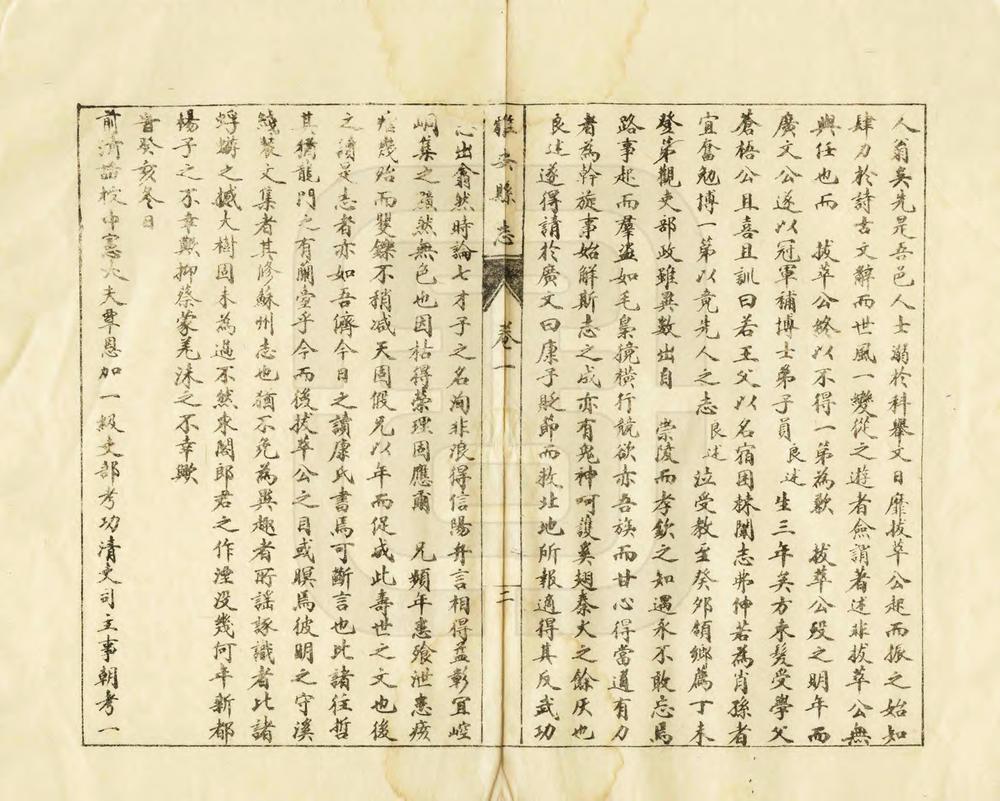 人翁矣先是吾邑人士溺於科舉文日靡拔萃公起而振之始知
肆力於詩古文辭而世風一變從之遊者僉謂著述非拔萃公無
與任也而 拔萃公終以不得一第為歉 拔萃公歿之明年而
廣文公遂以冠軍補博士弟子員良述生三年矣方束髮受學父
蒼梧公且喜且訓曰若王父以名宿困棘闈志弗伸若為肖孫者
宜奮勉博一第以竟先人之志良述泣受教至癸卯領鄉薦丁未
登第觀吏部政雖異數出自 崇陵而孝欽之知遇永不敢忘焉
路事起而羣盜如毛梟獍橫行競欲赤吾族而甘心得當道有力
者為幹旋事始解斯志之成亦有鬼神呵護矣迴秦火之餘灰也
良述遂得請於廣文曰康子貶節而救北地所報適得其反武功
雅安縣志 卷一 三
志出翕然時論七才子之名洵非浪得信陽弁言相得益彰宜崆
峒集之黯然無色也因枯得榮理固應爾 兄頻年患飧泄患痎
瘧幾殆而矍鑠不稍減天固假兄以年而促成此壽世之文也後
之讀是志者亦如吾儕今日之讀康氏書焉可斷言也比諸往哲
其猶龍門之有蘭臺乎今而後拔萃公之目或瞑焉彼明之守溪
綫裝文集者其修蘇州志也猶不免為異趣者所謠諑識者比諸
蜉蝣之撼大樹固未為過不然東閣郎君之作湮沒幾何年新都
楊子之不幸歟抑蔡蒙羌沫之不幸歟
旹癸亥冬日
前清誥授中憲大夫覃恩加一級吏部考功清吏司主事朝考一